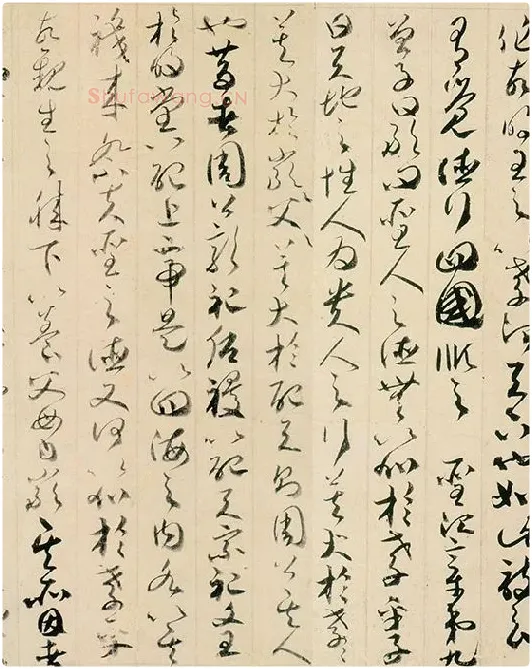 作故明王之以孝治天下也如此詩云
有覺德行四國順之 聖治章第九
曾子曰敢問聖人之德無以加於孝乎子
曰天地之性人為貴人之行莫大於孝〻
莫大於嚴父〻莫大於配天則周公其人
也昔者周公郊祀后稷以配天宗祀文王
於明堂以配上帝是以四海之內各以其
職來祭夫聖之德又何以加於孝乎
故親生之膝下以養父母日嚴其所因者
ShufaWang.CN